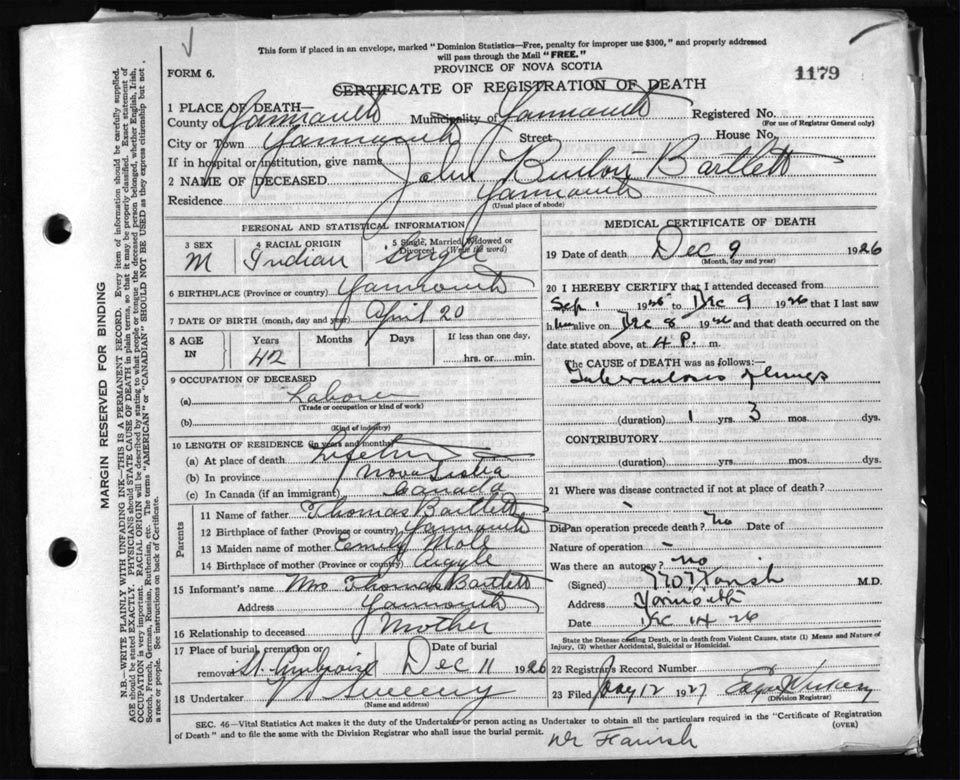 This form if placed in an envelope, marked "Dominion Statistics—Free, penalty for improper use $300," and properly addressed
will pass through the Mail "FREE."
FORM 6.
PROVINCE OF NOVA SCOTIA
1179
CERTIFICATE OF REGISTRATION OF DEATH
1 PLACE OF DEATH—
County of Yarmouth Municipality of Yarmouth Registered No.
(For use of Registrar General only)
City or Town Yarmouth Street House No.
If in hospital or institution, give name
2 NAME OF DECEASED John Bartlett
Residence Yarmouth
(Usual place of abode)
PERSONAL AND STATISTICAL INFORMATION
3 SEX M
4 RACIAL ORIGIN Indian
5 Single, Married, Widowed or Divorced (Write the word) Single
6 BIRTHPLACE (Province or country) Yarmouth
7 DATE OF BIRTH (month, day and year) April 20
8 AGE IN Years 42 Months Days If less than one day, hrs. or min.
9 OCCUPATION OF DECEASED
(a) Laborer
(Trade or occupation or kind of work)
(b)
(Kind of industry)
10 LENGTH OF RESIDENCE (in years and months)
(a) At place of death Lifetime
(b) In province Nova Scotia
(c) In Canada (if an immigrant) Canada
Parents
11 Name of father Thomas Bartlett
12 Birthplace of father (Province or country) Yarmouth
13 Maiden name of mother Emily
14 Birthplace of mother (Province or country) Argyle
15 Informant's name Mrs Thomas Bartlett
Address Yarmouth
16 Relationship to deceased Mother
17 Place of burial, cremation or removal St. Ambroise Date of burial Dec 11 1926
18 Undertaker Sweeny
(Name and address)
MEDICAL CERTIFICATE OF DEATH
19 Date of death Dec 9 1926
(Month, day and year)
20 I HEREBY CERTIFY that I attended deceased from
Sep 1 1926 to Dec 9 1926 that I last saw
him alive on Dec 8 1926 and that death occurred on
date stated above, at 4 P. m.
The CAUSE of DEATH was as follows:—
Tuberculosis of lungs
(duration) 1 yrs. 3 mos. dys.
CONTRIBUTORY
(duration) yrs. mos. dys.
21 Where was disease contracted if not at place of death?
Did an operation precede death? no Date of
Nature of operation
Was there an autopsy? no
(Signed) M.D.
Address Yarmouth
Date Dec 14 26
State the Disease causing Death, or in death from Violent Causes, state (1) Means and Nature of
Injury, (2) whether Accidental, Suicidal or Homicidal.
22 Registrar's Record Number
23 Filed Jany 12 1927
(Division Registrar)
SEC. 46—Vital Statistics Act makes it the duty of the Undertaker or person acting as Undertaker to obtain all the particulars required in the "Certificate of Registration
of Death" and to file the same with the Division Registrar who shall issue the burial permit.
(OVER)
MARGIN RESERVED FOR BINDING
N.B.—WRITE PLAINLY WITH UNFADING INK—THIS IS A PERMANENT RECORD. Every item of information should be carefully supplied.
AGE should be stated EXACTLY. PHYSICIANS should STATE CAUSE OF DEATH in plain terms, so that it may be properly classified. Exact statement of
OCCUPATION is very important. RACIAL ORIGIN will be described by stating to what people or tongue the deceased person belonged, whether English, Irish,
Scotch, French, German, Russian, Ruthenian, etc. The terms "AMERICAN" or "CANADIAN" SHOULD NOT BE USED as they express citizenship but not
a race or people. See instructions on back of Certificate.